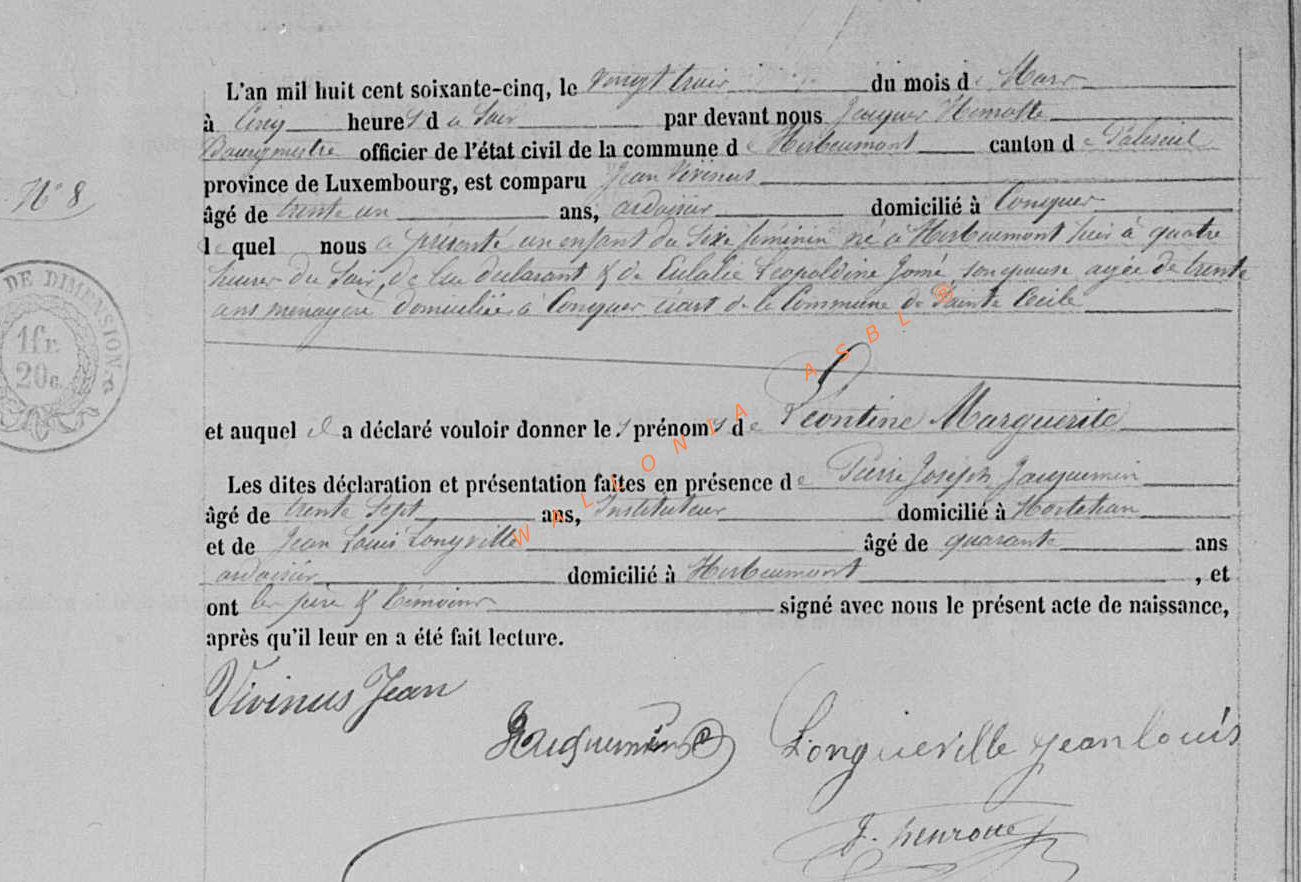 L'an mil huit cent soixante-cinq, le vingt trois du mois de Mars
à Cinq heures du Soir par devant nous Jacques
Bourgmestre officier de l'état civil de la commune de Herbeumont canton de Paliseul
N° 8
province de Luxembourg, est comparu Jean Vivinus
âgé de trente un ans, ardoisier domicilié à Conques
lequel nous a présenté un enfant du Sexe féminin né à Herbeumont hier à quatre
heures du Soir, de lui déclarant & de Eulalie Léopoldine Jomé son épouse agée de trente
ans menagère domiciliée à Conques écart de la Commune de Sainte Cécile
DE DIMENSION
1fr.
20c.
et auquel il a déclaré vouloir donner les prénoms de Léontine Marguerite
Les dites déclaration et présentation faites en présence de Pierre Joseph Jacquemin
âgé de trente Sept ans, Instituteur domicilié à Mortehan
et de Jean Louis Longville âgé de quarante ans
ardoisier domicilié à Herbeumont, et
ont les père & témoins signé avec nous le présent acte de naissance,
après qu'il leur en a été fait lecture.
Vivinus Jean
Jacquemin
Longueville jean louis
WALLONIA ASBL ®